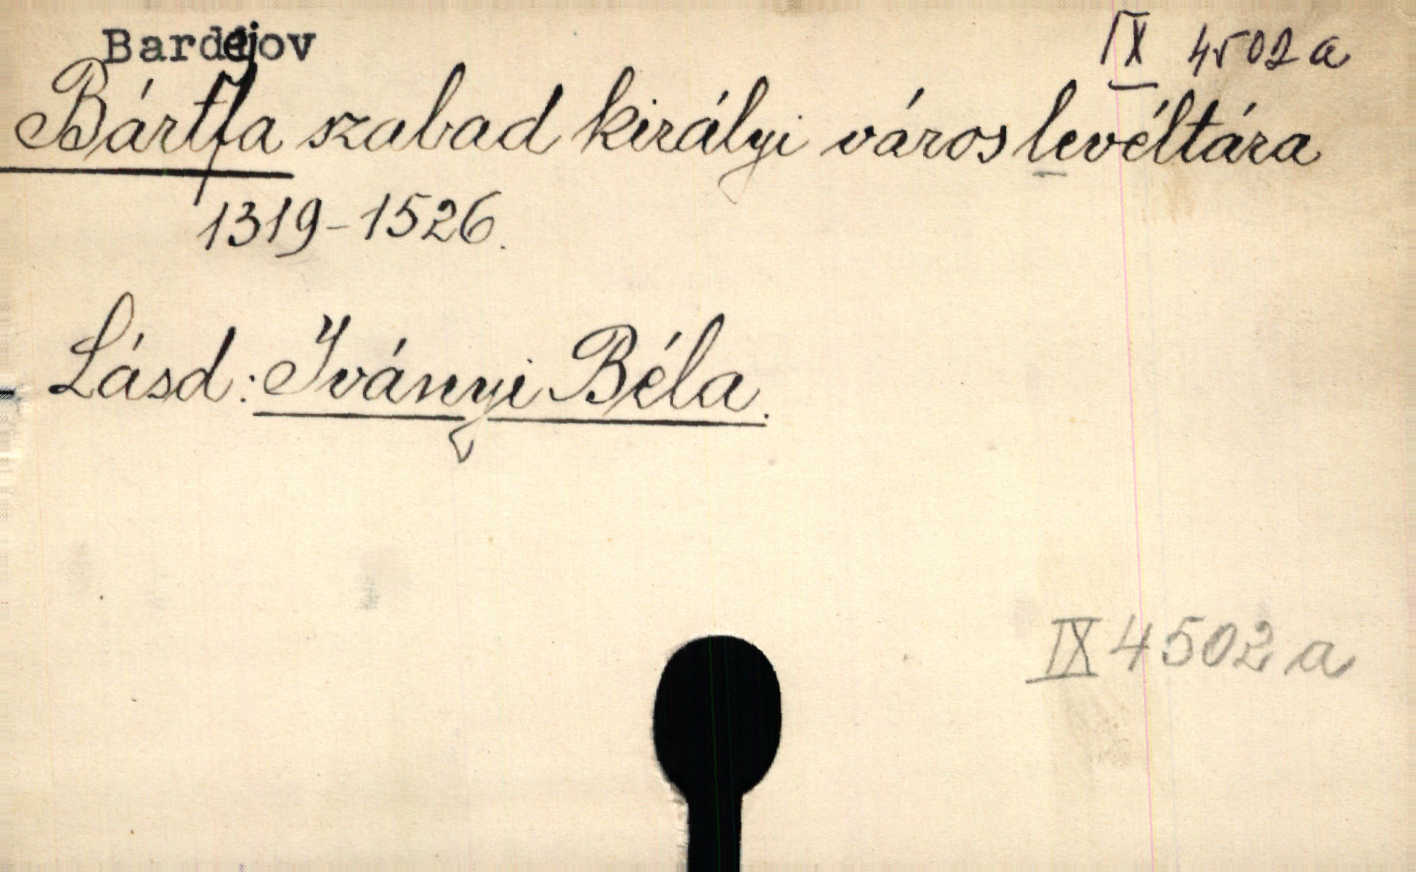 Bardejov IX 4502 a
Bártfa szabad királyi város levéltára
1319-1526.
Lásd: Iványi Béla.
IX 4502 a